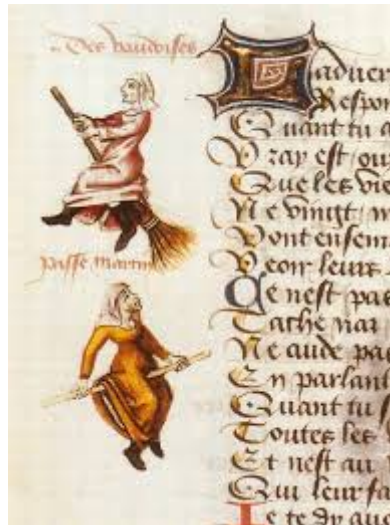 Des vaudoises
passe martin
L aduer
Respon
Quant tu
Vray est / ou
Que les vi
Ne vingt / n
Dont ensem
Veoir leurs
Ce nest pa
Tache nai
Ne cuide pa
En parlant
Quant tu
Toutes les
Et nest au
Qui leur fa
Je te dy que